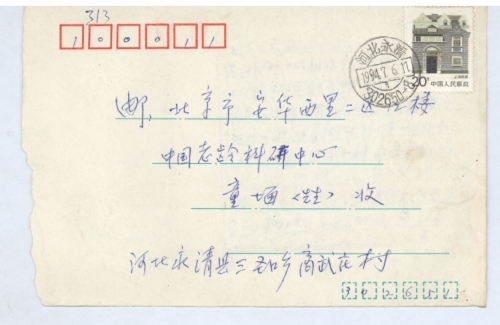 313
100011
河北永清
1994.7.6.17
302650
20分
上海民居
中国人民邮政
邮, 北京市安华西里二区12楼
中国老龄科研中心
童 (生) 收
河北永清县三圣口乡商武庄村
302651